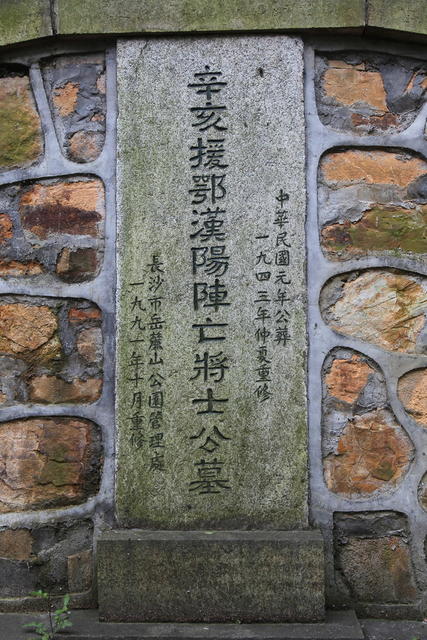 中華民國元年公葬
一九四三年仲夏重修
辛亥援鄂漢陽陣亡將士公墓
長沙市岳麓山公園管理處
一九九一年十月重修